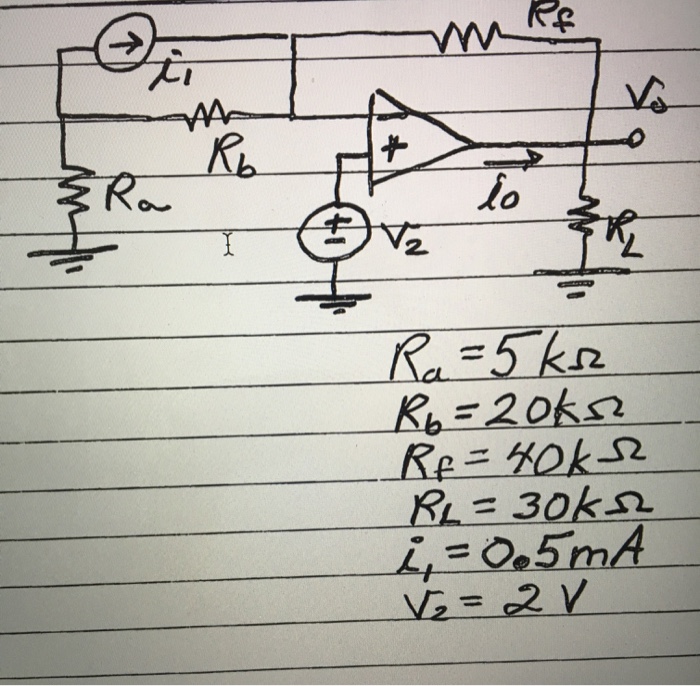 Rf
i₁
Vo
Rb
+
Ra
io
+
V₂
RL
Ra = 5kΩ
Rb = 20kΩ
Rf = 40kΩ
RL = 30kΩ
i₁ = 0.5mA
V₂ = 2 V